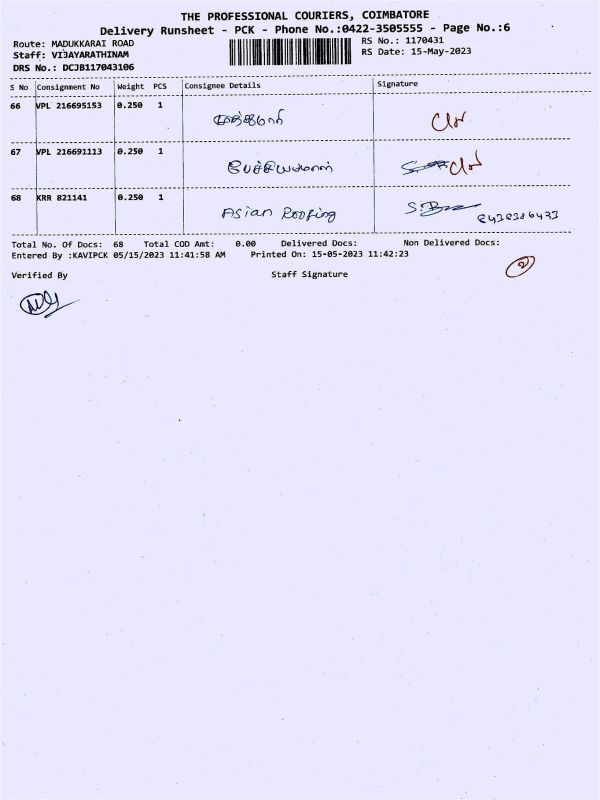 THE PROFESSIONAL COURIERS, COIMBATORE
Delivery Runsheet - PCK - Phone No.:0422-3505555 - Page No.:6
Route: MADUKKARAI ROAD
Staff: VIJAYARATHINAM
DRS No.: DCJB117043106
RS No.: 1170431
RS Date: 15-May-2023
S No Consignment No Weight PCS Consignee Details Signature
66 VPL 216695153 0.250 1
67 VPL 216691113 0.250 1 பேச்சியம்மாள்
68 KRR 821141 0.250 1 Asian Roofing
Total No. Of Docs: 68 Total COD Amt: 0.00 Delivered Docs: Non Delivered Docs:
Entered By :KAVIPCK 05/15/2023 11:41:58 AM Printed On: 15-05-2023 11:42:23
2
Verified By Staff Signature